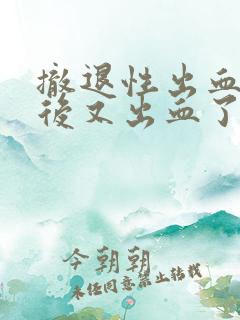 撤退性出血
後又出血了
今朝朝
未经同意禁止转载